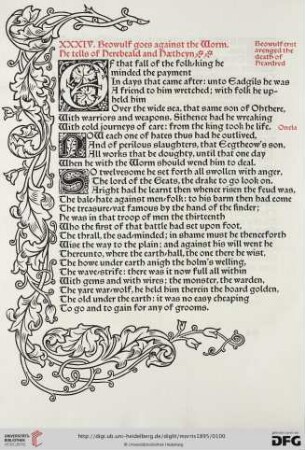 XXXIV. Beowulf goes against the Worm.
He tells of Herebeald and Hæthcyn
Beowulf erst
avenged the
death of
Heardred
Of that fall of the folk-king he
minded the payment
In days that came after: unto Eadgils he was
A friend to him wretched; with folk he up-
held him
Over the wide sea, that same son of Ohthere,
With warriors and weapons. Sithence had he wreaking
With cold journeys of care: from the king took he life. Onela
NOW each one of hates thus had he outlived,
And of perilous slaughters, that Ecgtheow's son,
All works that be doughty, until that one day
When he with the Worm should wend him to deal.
SO twelvesome he set forth all swollen with anger,
The lord of the Geats, the drake to go look on.
Aright had he learnt then whence risen the feud was,
The bale-hate against men-folk: to his barm then had come
The treasure-vat famous by the hand of the finder;
He was in that troop of men the thirteenth
Who the first of that battle had set upon foot,
The thrall, the sad-minded; in shame must he thenceforth
Wise the way to the plain; and against his will went he
Thereunto, where the earth-hall, the one there he wist,
The howe under earth anigh the holm's welling,
The wave-strife: there was it now full all within
With gems and with wires; the monster, the warden,
The yare war-wolf, he held him therein the hoard golden,
The old under the earth: it was no easy cheaping
To go and to gain for any of grooms.
UNIVERSITÄTS-
BIBLIOTHEK
HEIDELBERG
http://digi.ub.uni-heidelberg.de/diglit/morris1895/0100
© Universitätsbibliothek Heidelberg
gefördert durch die
DFG